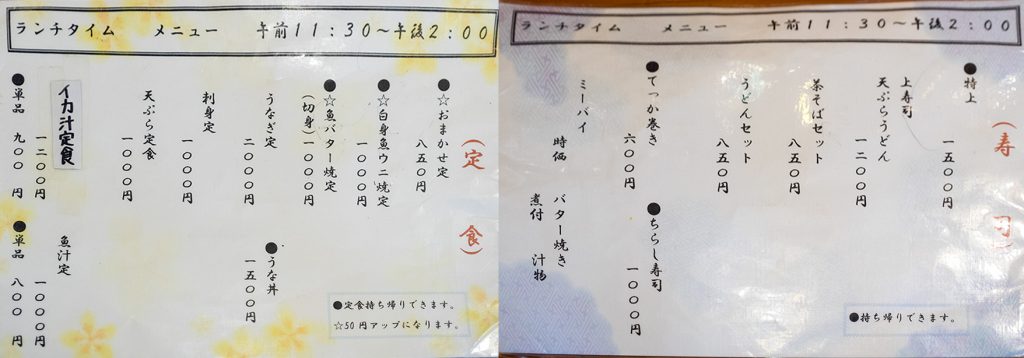 ランチタイム　メニュー　午前11：30～午後2：00
(定　食)
●☆おまかせ定
八五〇円
●☆白身魚ウニ焼定
一〇〇〇円
●☆魚バター焼定
(切身)一〇〇〇円
うなぎ定
二〇〇〇円
●うな丼
一五〇〇円
刺身定
一〇〇〇円
天ぷら定食
一〇〇〇円
イカ汁定食
一二〇〇円
●単品　九〇〇円
魚汁定
一〇〇〇円
●単品　八〇〇円
●定食持ち帰りできます。
☆50円アップになります。
ランチタイム　メニュー　午前11：30～午後2：00
(寿　司)
●特上
一五〇〇円
上寿司
天ぷらうどん
一二〇〇円
茶そばセット
八五〇円
うどんセット
八五〇円
●てっか巻き
六〇〇円
●ちらし寿司
一〇〇〇円
ミーバイ
時価
バター焼き
煮付　汁物
●持ち帰りできます。